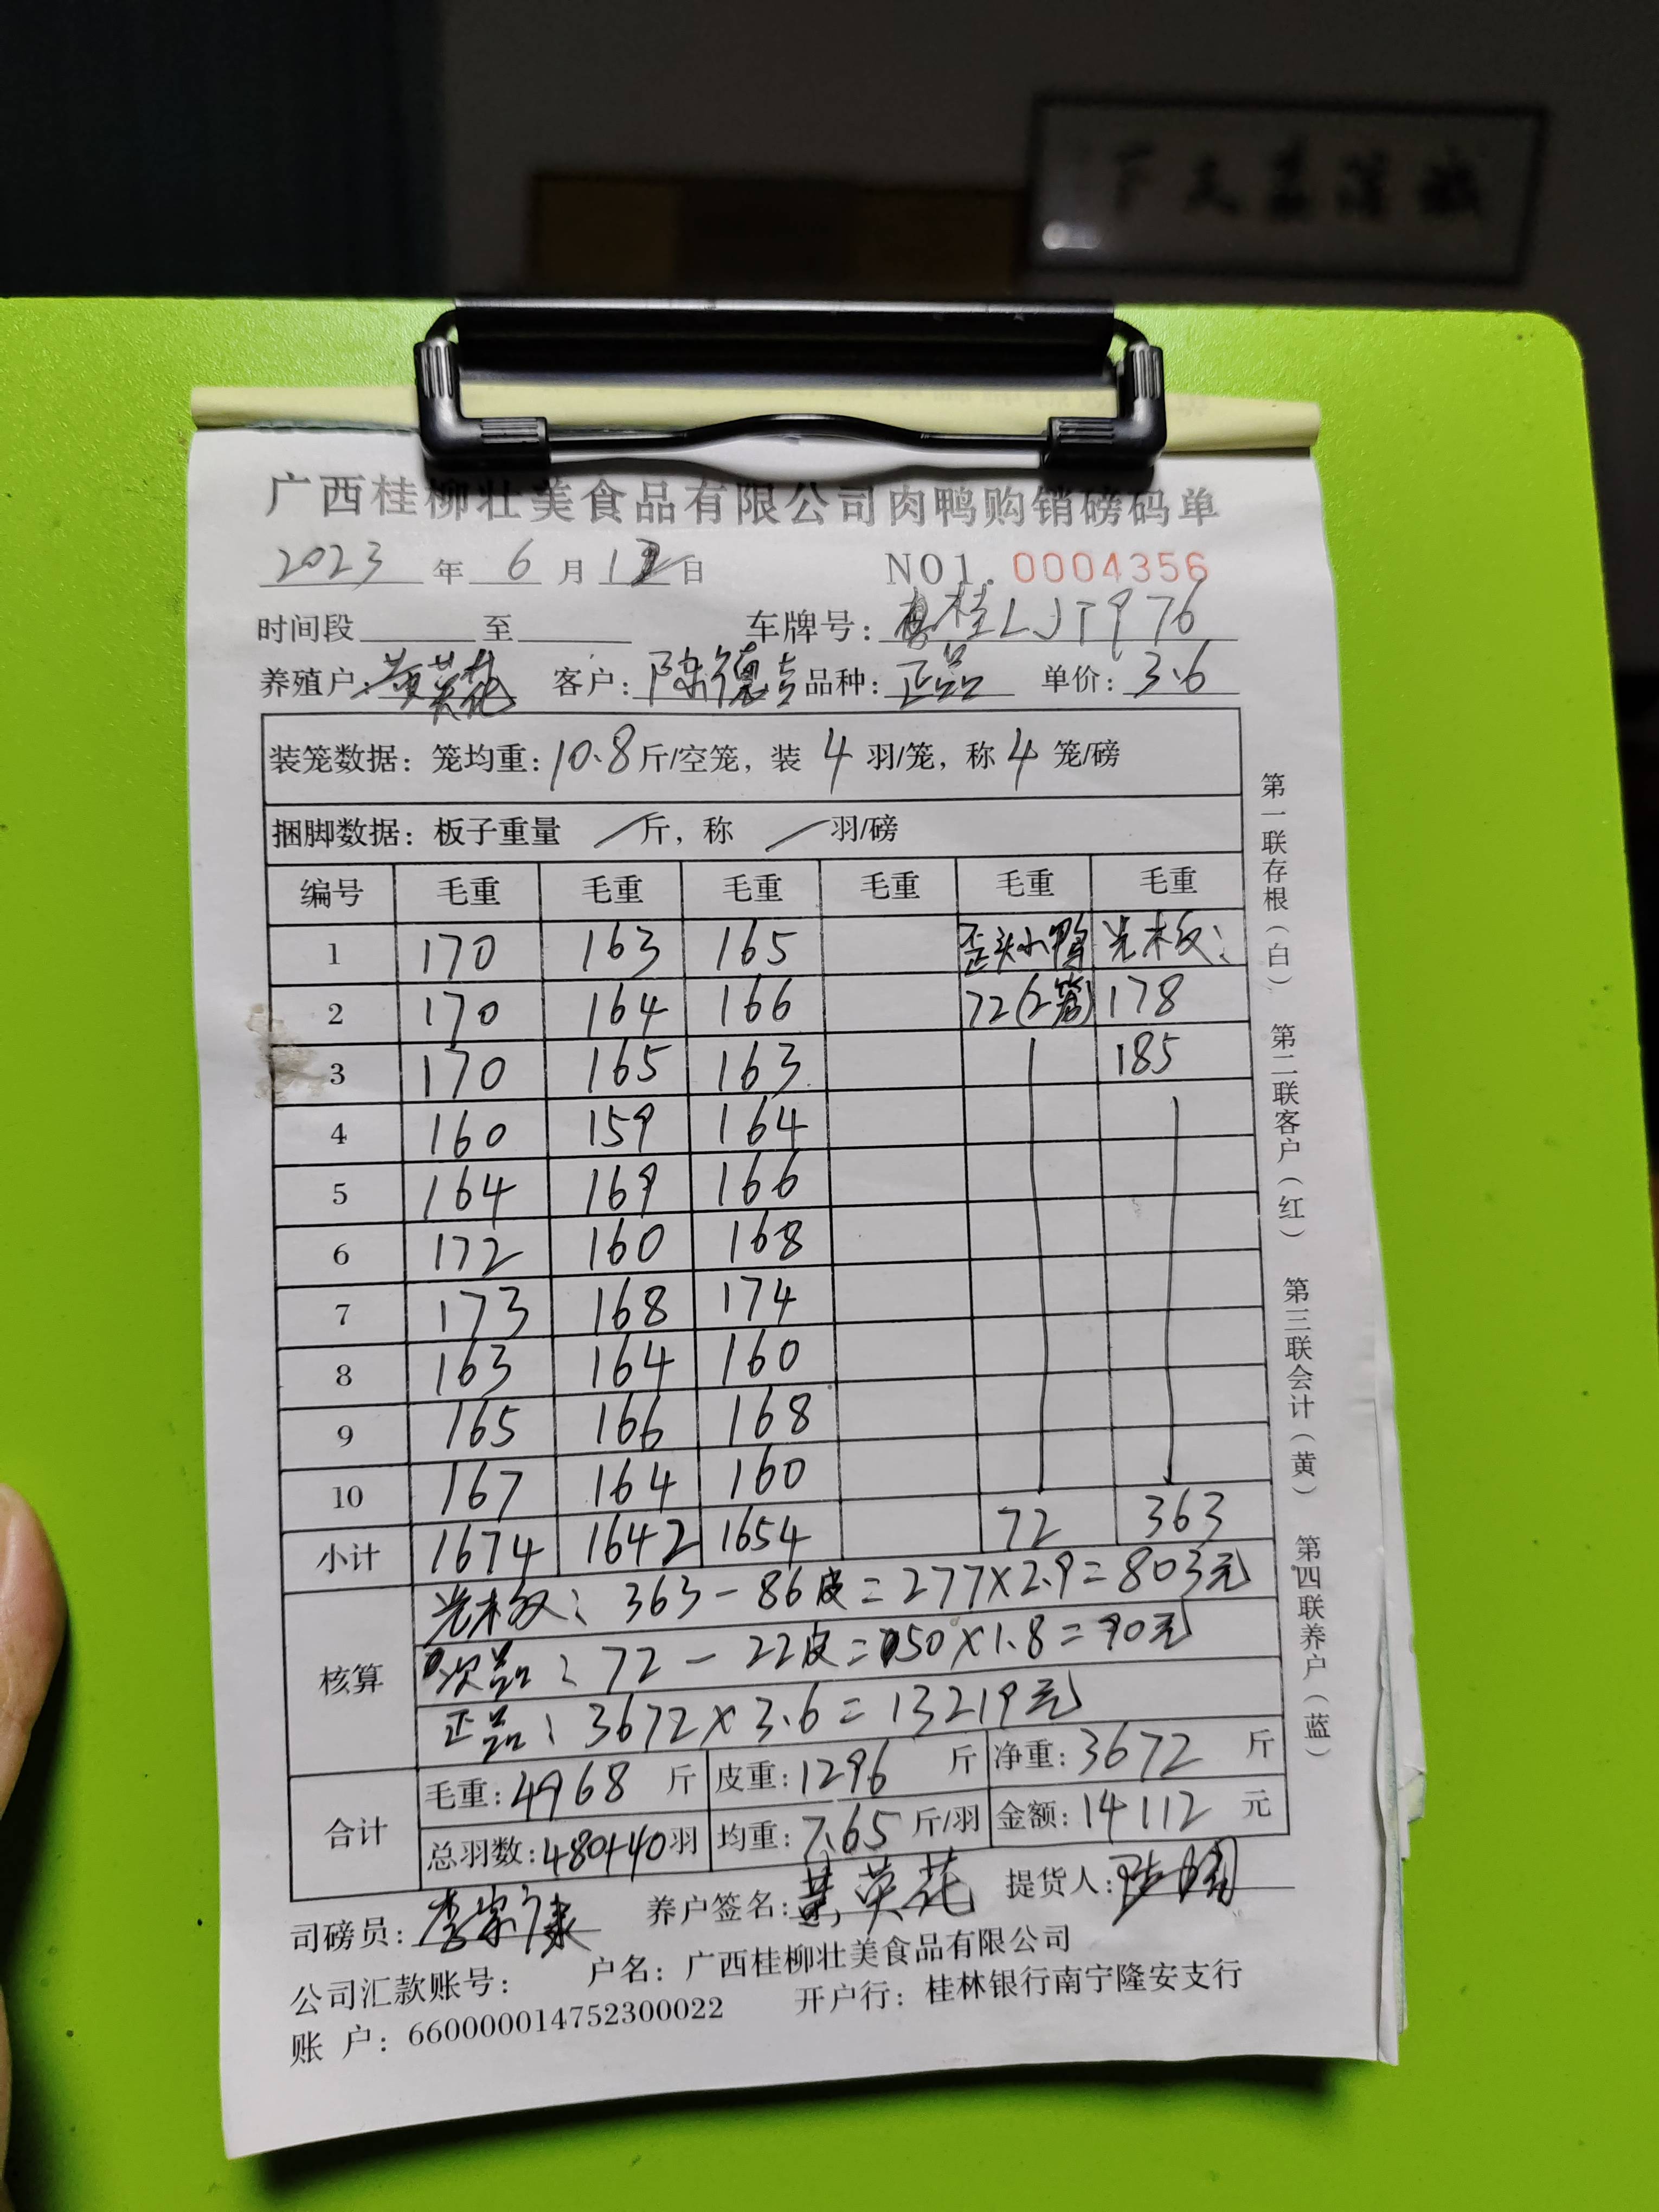 广西桂柳壮美食品有限公司肉鸭购销磅码单
2023 年 6 月 12 日 NO1. 0004356
时间段 至 车牌号: 桂LJT976
养殖户: 黄英花 客户: 陈德吉 品种: 正品 单价: 3.6
装笼数据: 笼均重: 10.8 斤/空笼, 装 4 羽/笼, 称 4 笼/磅
捆脚数据: 板子重量 / 斤, 称 / 羽/磅
编号 毛重 毛重 毛重 毛重 毛重 毛重
1 170 163 165 歪头小鸭 光板:
2 170 164 166 72(2笼) 178
3 170 165 163 185
4 160 159 164
5 164 169 166
6 172 160 168
7 173 168 174
8 163 164 160
9 165 166 168
10 167 164 160
小计 1674 1642 1654 72 363
核算
光板: 363-86皮=277×2.9=803元
次品: 72-22皮=50×1.8=90元
正品: 3672×3.6=13219元
合计
毛重: 4968 斤 皮重: 1296 斤 净重: 3672 斤
总羽数: 480+40羽 均重: 7.65 斤/羽 金额: 14112 元
司磅员: 李家康 养户签名: 黄英花 提货人:
公司汇款账号: 户名: 广西桂柳壮美食品有限公司
账 户: 660000014752300022 开户行: 桂林银行南宁隆安支行
第一联存根(白) 第二联客户(红) 第三联会计(黄) 第四联养户(蓝)